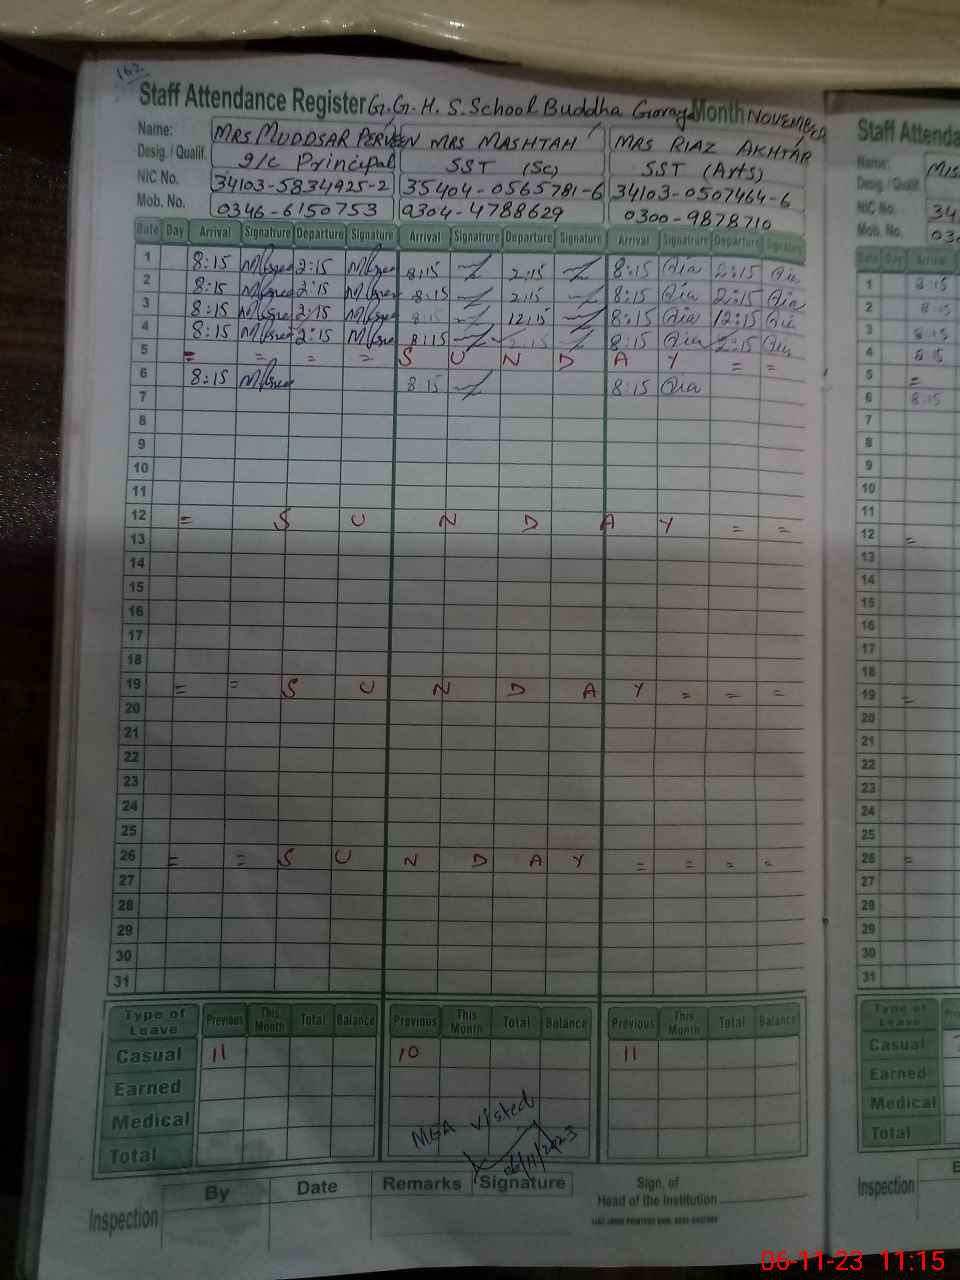 162
Staff Attendance Register G.G.H.S.School Buddha Goray Month NOVEMBER
Name: MRS MUDDSAR PERVEEN MRS MASHTAH MRS RIAZ AKHTAR
Desig. / Qualif. I/C Principal SST (Sc) SST (Arts)
NIC No. 34103-5834925-2 35404-0565781-6 34103-0507464-6
Mob. No. 0346-6150753 0304-4788629 0300-9878710
Date Day Arrival Signature Departure Signature Arrival Signatrure Departure Signature Arrival Signatrure Departure Signature
1 8:15 2:15 8:15 2:15 8:15 2:15
2 8:15 2:15 8:15 2:15 8:15 2:15
3 8:15 2:15 8:15 12:15 8:15 12:15
4 8:15 2:15 8:15 2:15 8:15 2:15
5 = = = = S U N D A Y = =
6 8:15 8:15 8:15
7
8
9
10
11
12 = S U N D A Y = =
13
14
15
16
17
18
19 = = S U N D A Y = = =
20
21
22
23
24
25
26 = = S U N D A Y = = = =
27
28
29
30
31
Type of Leave Previous This Month Total Balance Previous This Month Total Balance Previous This Month Total Balance
Casual 11 10 11
Earned
Medical
Total
MEA visted
06/11/2023
Inspection By Date Remarks Signature
Sign. of
Head of the Institution
Staff Attenda
Name: MIS
Desig. / Qualif.
NIC No. 34
Mob. No. 03
Date Day Arrival
1 8:15
2 8:15
3 8:15
4 8:15
5 =
6 8:15
7
8
9
10
11
12 =
13
14
15
16
17
18
19 =
20
21
22
23
24
25
26 =
27
28
29
30
31
Type of Leave
Casual
Earned
Medical
Total
Inspection
06-11-23 11:15